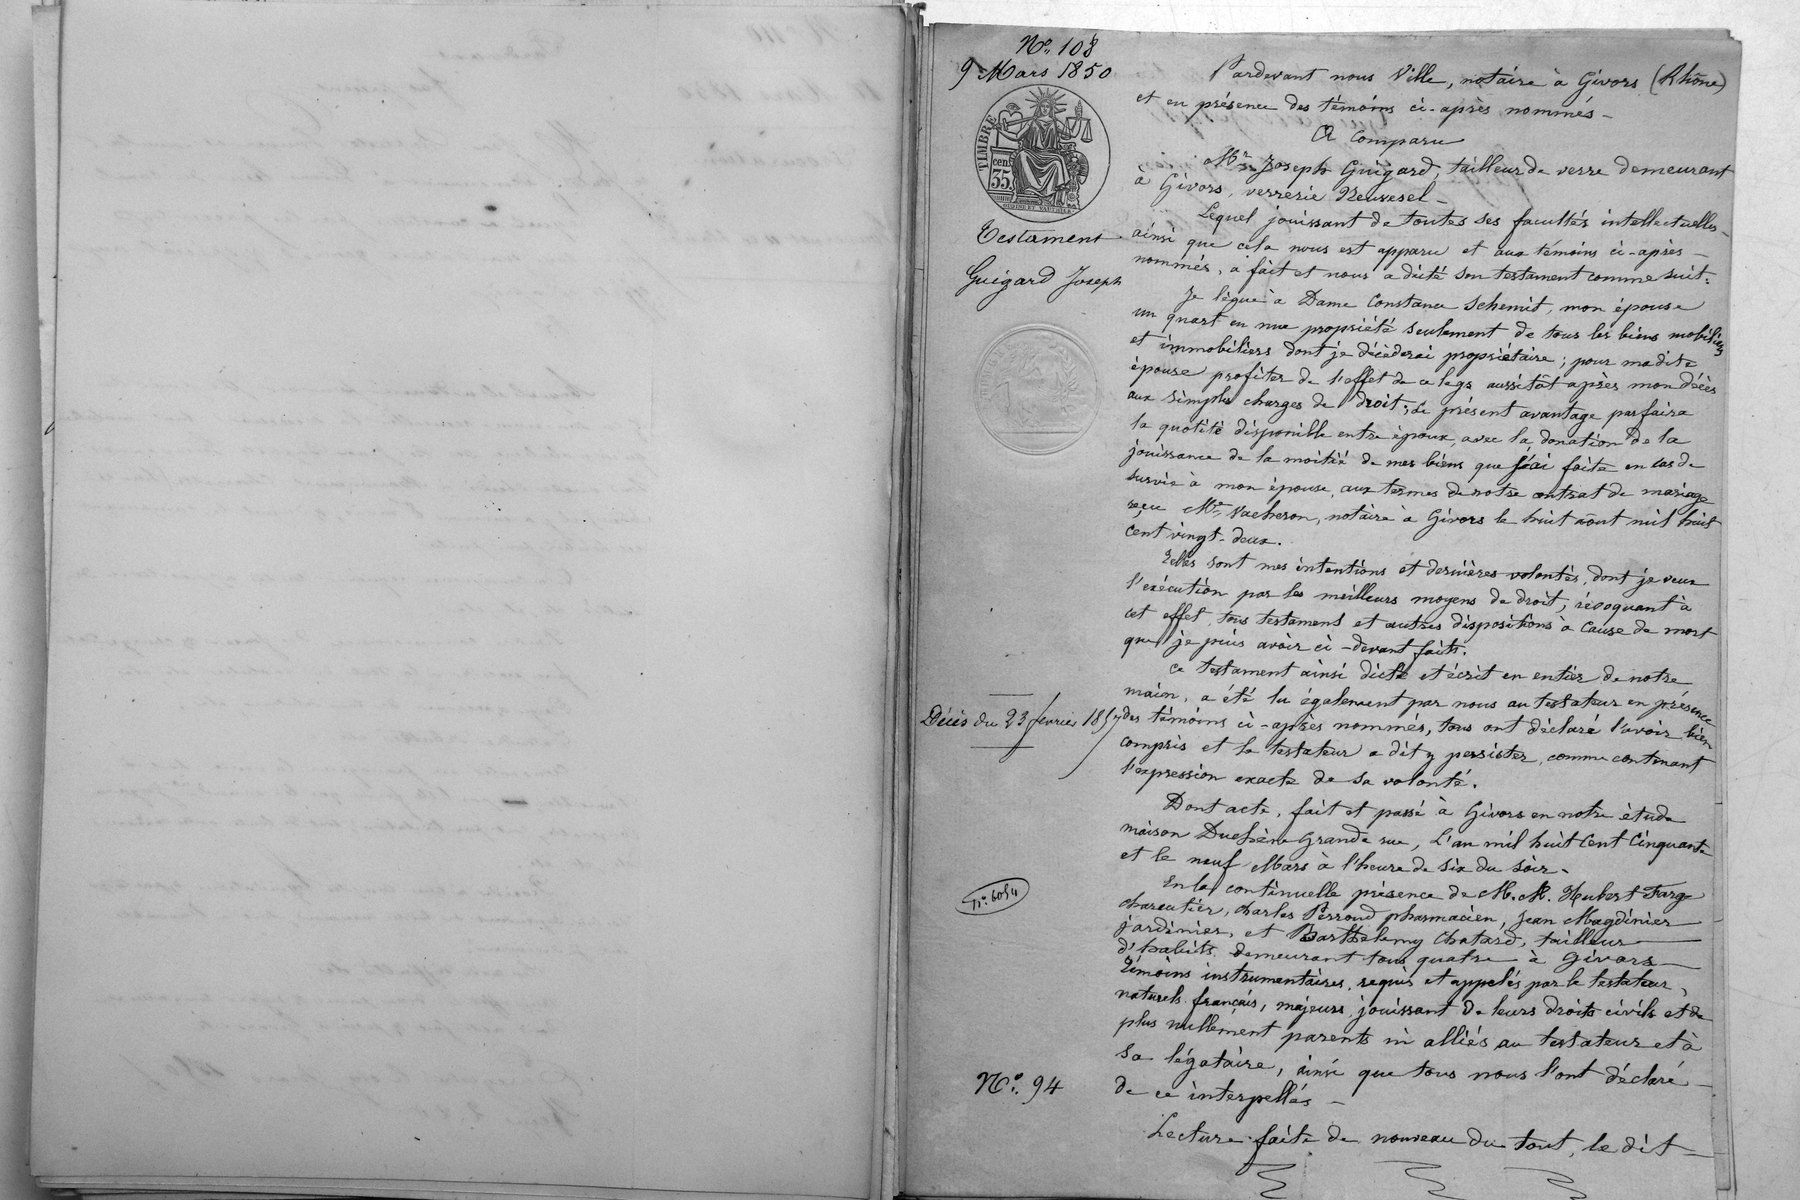 N°. 108
9 Mars 1850
TIMBRE
35 cen
Testament
Guigard Joseph
Pardevant nous Ville, notaire à Givors (Rhône)
et en présence des témoins ci-après nommés –
A comparu
Mr Joseph Guigard, tailleur de verre demeurant
à Givors, verrerie Neuvesel –
Lequel jouissant de toutes ses facultés intellectuelles –
ainsi que cela nous est apparu et aux témoins ci-après –
nommés, a fait et nous a dicté son testament comme suit :
Je lègue à Dame Constance Schemit, mon épouse
un quart en nue propriété seulement de tous les biens mobiliers
et immobiliers dont je décèderai propriétaire ; pour madite
épouse profiter de l'effet de ce legs aussitôt après mon décès
aux simples charges de droit ; le présent avantage parfaira
la quotité disponible entre époux, avec la donation de la
jouissance de la moitié de mes biens que j'ai faite en cas de
survie à mon épouse, aux termes de notre contrat de mariage
reçu Me Vacheron, notaire à Givors le huit août mil huit
cent vingt-deux.
Telles sont mes intentions et dernières volontés, dont je veux
l'exécution par les meilleurs moyens de droit, révoquant à
cet effet, tous testament et autres dispositions à cause de mort
que je puis avoir ci-devant faits.
Ce testament ainsi dicté et écrit en entier de notre
main, a été lu également par nous au testateur en présence
Décès du 23 février 1857
des témoins ci-après nommés, tous ont déclaré l'avoir bien
compris et le testateur a dit y persister, comme contenant
l'expression exacte de sa volonté.
Dont acte, fait et passé à Givors en notre étude
maison Duchêne Grande rue, L'an mil huit cent cinquante
et le neuf Mars à l'heure de six du soir –
En la continuelle présence de M.M. Hubert Farge
n°. 6054
charcutier, Charles Perroud pharmacien, Jean Magdinier
jardinier, et Barthelemy Chatard, tailleur
d'habits, demeurant tous quatre à Givors –
témoins instrumentaires, requis et appelés par le testateur,
naturels français, majeurs, jouissant de leurs droits civils et de
plus nullement parents ni alliés au testateur et à
sa légataire, ainsi que tous nous l'ont déclaré –
N°. 94
de ce interpellés –
Lecture faite de nouveau du tout, le dit –